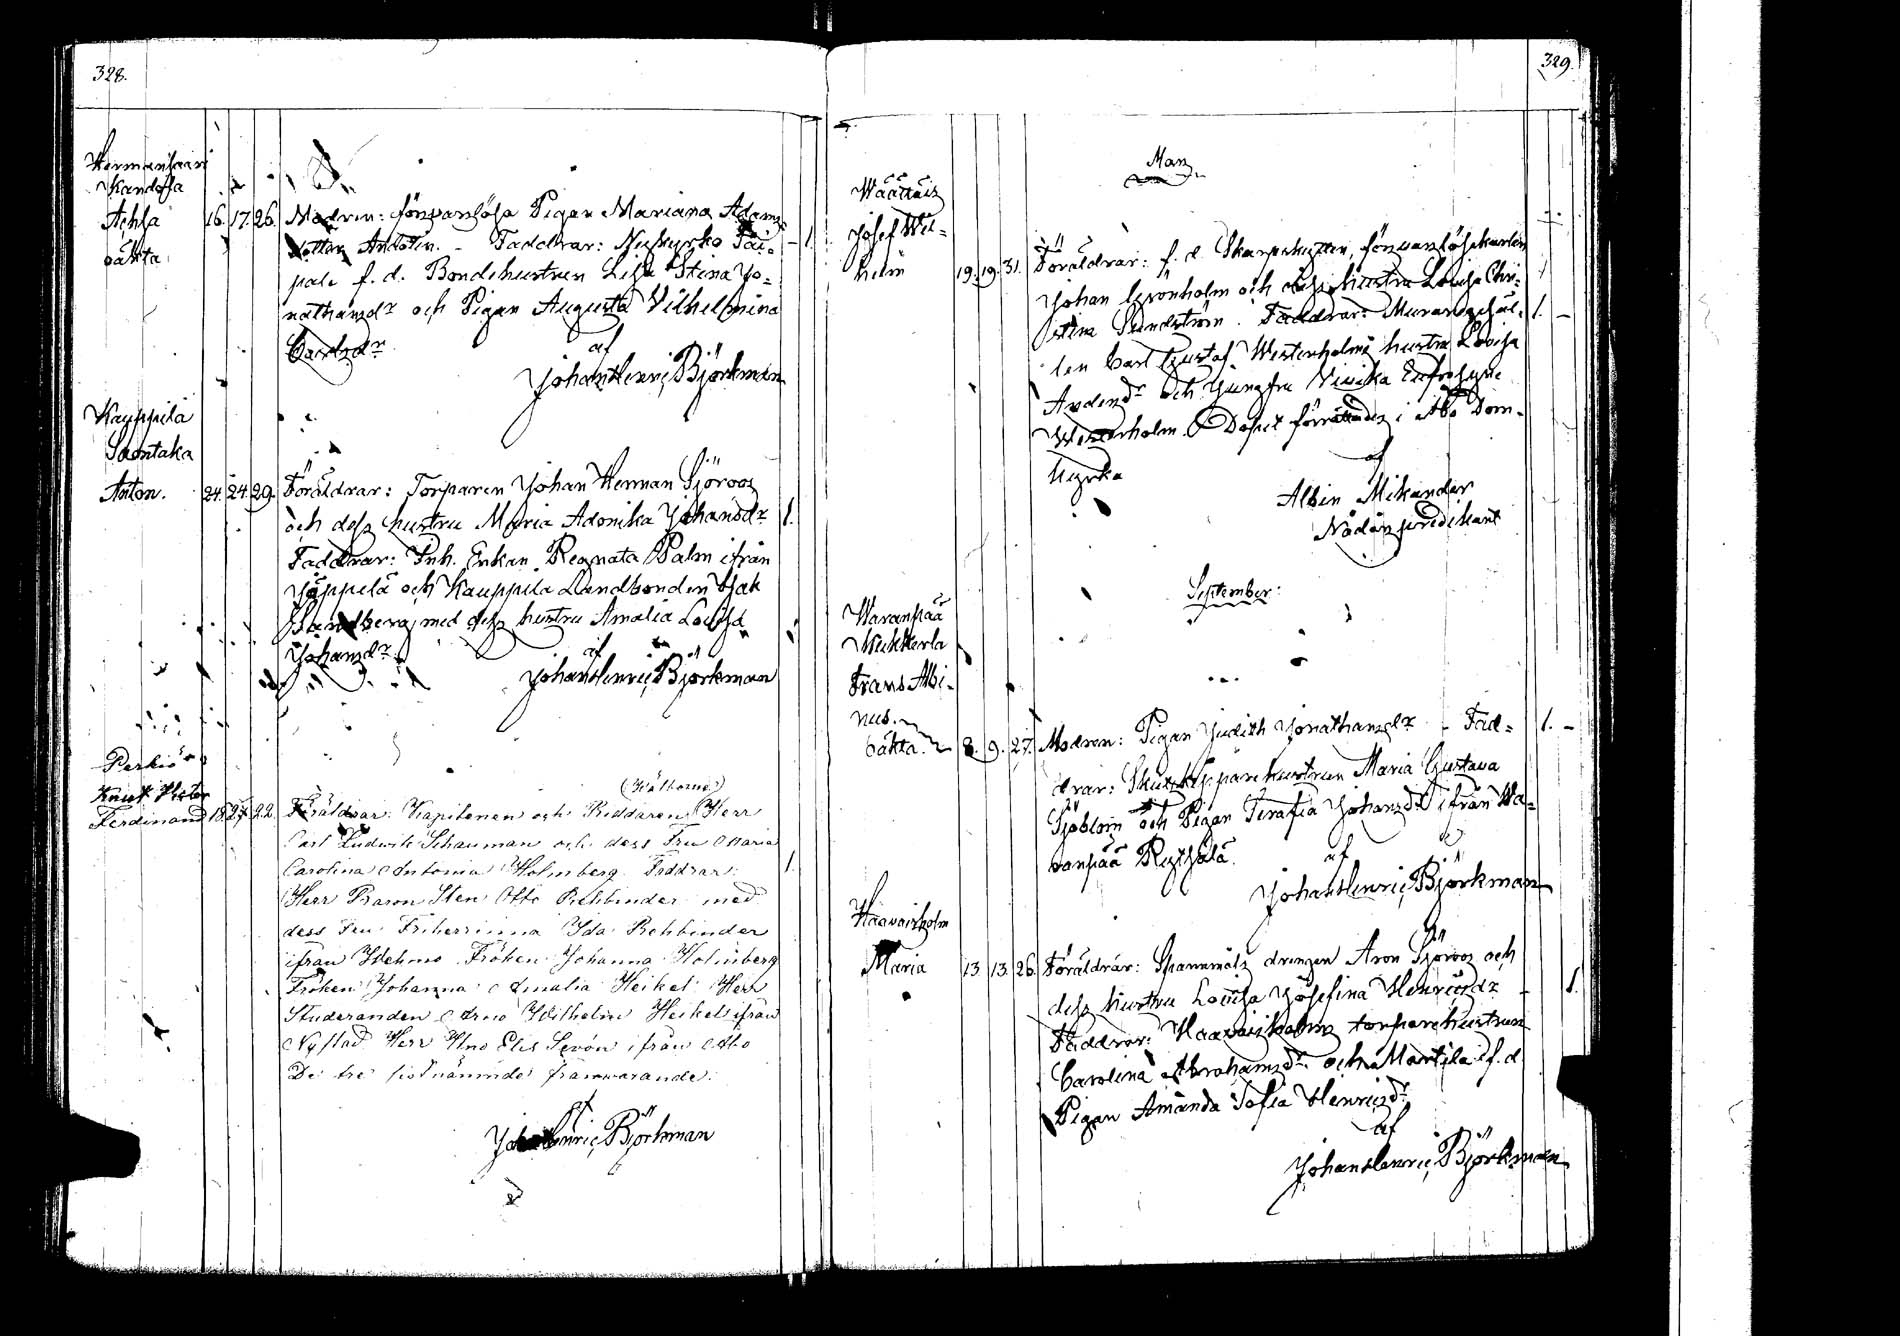 328.
Hermansaari
Kandola
Achla
oäkta
16. 17. 26.
Modren: försvarslösa Pigan Mariana Adams
dotter Andelin. - Faddrar: Nykyrko Tai-
pale f. d. Bondehustrun Lisa Stina Jo-
nathansdr och Pigan Augusta Vilhelmina
Carlsdr
af
Johan Henric Björkman
1.
Kauppila
Santaka
Anton.
24. 24. 29.
Föräldrar: Torparen Johan Herman Sjöroos
och dess hustru Maria Adonika Johansdr
Faddrar: Inh. Enkan Regnata Palm ifrån
Jäppilä och Kauppila Landbonden Isak
Sandberg med dess hustru Amalia Lovisa
Johansdr
af
Johan Henric Björkman
1.
Perkiö
Knut
Ferdinand
18. 27. 22.
(Välborne)
Föräldrar: Kapitenen och Riddaren Herr
Carl Ludvik Schauman och dess Fru Maria
Carolina Antonia Holmberg Faddrar:
Herr Baron Sten Otto Rehbinder med
dess Fru Friherrinna Ida Rehbinder
ifrån Wehmo Fröken Johanna Holmberg
Fröken Johanna Amalia Heikel Herr
Studeranden Arno Wilhelm Heikel ifrån
Nystad Herr Uno Elis Sevón ifrån Åbo
De tre sistnämnde frånvarande.
1
af
Johan Henric Björkman
329.
Maij
Wäättäis
Josef Wil-
helm
19. 19. 31.
Föräldrar: f. d. Skarpskytten, försvarslösekarlen
Johan Grönholm och dess hustru Lovisa Chri-
stina Sundström. Faddrar: Muraregesäl-
len Carl Gustaf Westerholms hustru Lovisa
Andersdr och Jungfru Viuika Eufrosyne
Westerholm. Dopet förrättades i Åbo Dom-
kyrka
1. -
af
Albin Mikander
Nådårspredikant
September:
Waranpää
Wukkerla
Frans Albi-
nus.
oäkta.
8. 9. 27.
Modren: Pigan Judith Jonathansdr - Fad-
drar: Skutskepparehustrun Maria Gustava
Sjöblom och Pigan Serafia Johansdr ifrån Wa-
ranpää Rustfälä.
1. -
af
Johan Henric Björkman
Haavaisholm
Maria
13. 13. 26.
Föräldrar: Spannmåls drengen Aron Sjöroos och
dess hustru Lovisa Josefina Henricsdr
Faddrar: Haavaisholms torparehustrun
Carolina Abrahamsdr och Marttila f. d.
Pigan Amanda Sofia Henricsdr
- 1.
af
Johan Henric Björkman